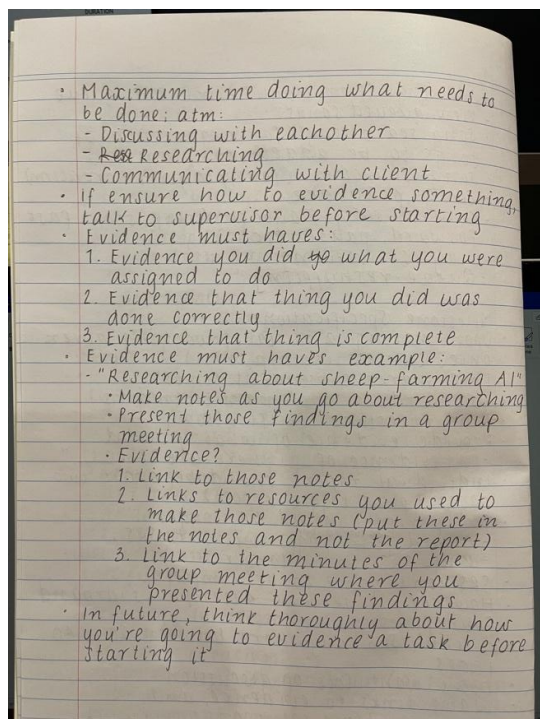 • Maximum time doing what needs to
be done; atm:
- Discussing with eachother
- Researching
- Communicating with client
• If ensure how to evidence something,
talk to supervisor before starting
• Evidence must haves:
1. Evidence you did what you were
assigned to do
2. Evidence that thing you did was
done correctly
3. Evidence that thing is complete
• Evidence must haves example:
- "Researching about sheep-farming AI"
• Make notes as you go about researching
• Present those findings in a group
meeting
• Evidence?
1. Link to those notes
2. Links to resources you used to
make those notes (put these in
the notes and not the report)
3. Link to the minutes of the
group meeting where you
presented these findings
• In future, think thoroughly about how
you're going to evidence a task before
starting it